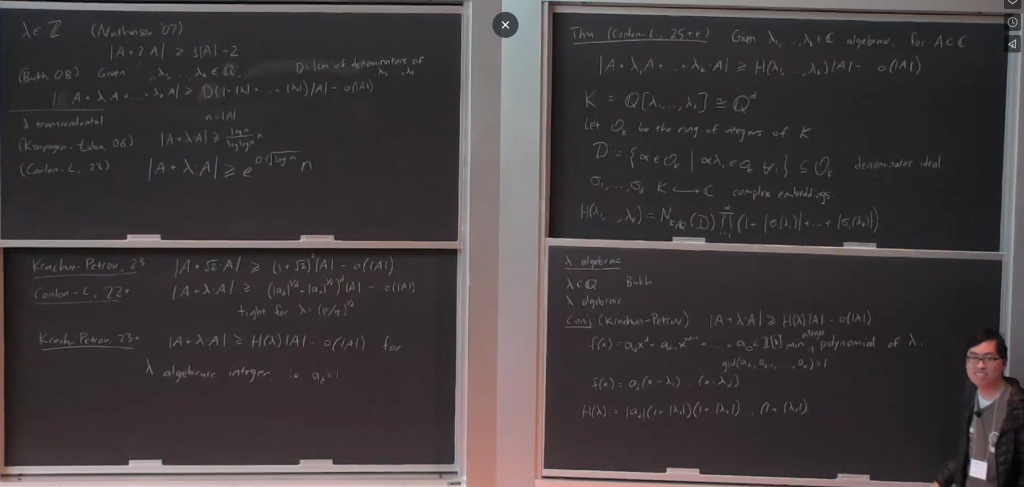 λ ∈ ℤ (Nathanson '07)
|A+2·A| ≥ 3|A|-2
(Bukh 08) Given λ₁, ..., λₖ ∈ ℚ. D = lcm of denominators of λ₁, ..., λₖ
|A+λ₁A+...+λₖ·A| ≥ D(1+|λ₁|+...+|λₖ|)|A| - o(|A|)
n=|A|
λ transcendental
(Konyagin-Łaba, 06) |A+λ·A| ≥ log n / log log n · n
(Conlon-L, 23) |A+λ·A| ≥ e^{Ω(√log n)} n
Krachun-Petrov, 23 |A+√2·A| ≥ (1+√2)²|A| - o(|A|)
Conlon-L, 22+ |A+λ·A| ≥ (|a₀|^{1/d}+|a_d|^{1/d})^d |A| - o(|A|)
tight for λ=(p/q)^{1/d}
Krach-Petrov 23+ |A+λ·A| ≥ H(λ)|A| - o(|A|) for
λ algebraic integer, i.e. a_d=1
Thm (Conlon-L, 25++) Given λ₁, ..., λₖ ∈ ℂ algebraic, for A⊂ℂ
|A+λ₁A+...+λₖ·A| ≥ H(λ₁, ..., λₖ)|A| - o(|A|)
K = ℚ[λ₁, ..., λₖ] ≅ ℚ^d
Let O_K be the ring of integers of K
D = {α∈O_K | αλᵢ∈O_K ∀i} ⊆ O_K denominator ideal
σ₁, ..., σ_d K ↪ ℂ complex embeddings
H(λ₁, ..., λₖ) = N_{K/ℚ}(D) ∏_{i=1}^d (1+|σᵢ(λ₁)|+...+|σᵢ(λₖ)|)
λ algebraic
λ∈ℚ Bukh
λ algebraic
Conj (Krachun-Petrov) |A+λ·A| ≥ H(λ)|A| - o(|A|)
f(x) = a_d x^d + a_{d-1} x^{d-1} + ... + a₀ ∈ ℤ[x] min integer polynomial of λ.
gcd(a_d, a_{d-1}, ..., a₀)=1
f(x) = a_d(x-λ₁)...(x-λ_d)
H(λ) = |a_d|(1+|λ₁|)(1+|λ₂|)...(1+|λ_d|)